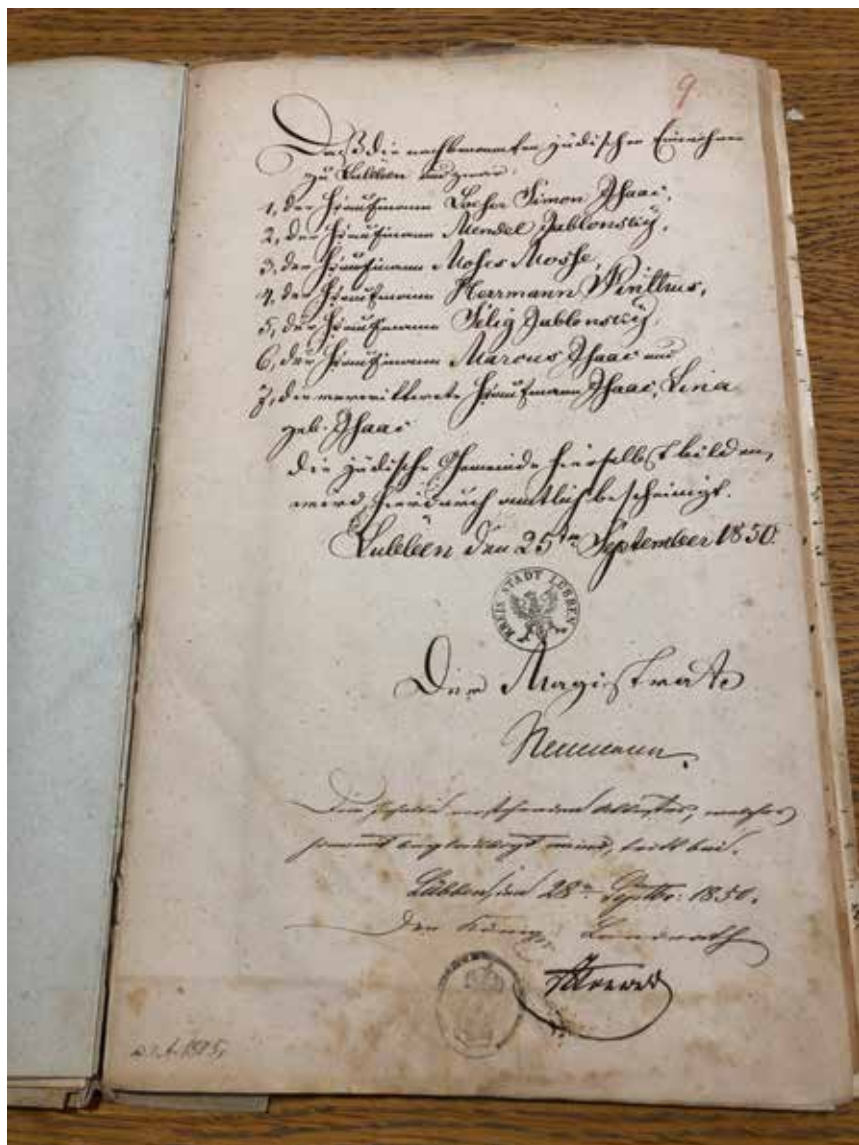 9.
Daß die nachbenannten jüdischen Einwohner
zu Lübben und zwar:
1, der Kaufmann Simon Isaac,
2, der Kaufmann Mendel Jablonsky,
3, der Kaufmann Moses Mosse,
4, der Kaufmann Herrmann
5, der Kaufmann Selig Jablonsky,
6, der Kaufmann Marcus Isaac und
7, die verwittwete Kaufmann Isaac, Lina
geb. Isaac
die jüdische Gemeinde hierselbst bilden,
wird hierdurch amtlich bescheinigt.
Lübben den 25ten September 1850.
KREIS STADT LÜBBEN
Der Magistrat
Neumann.
welches
hiermit beglaubigt wird, tritt bei.
Lübben, den 28n Septbr: 1850.
Der Königl. Landrath